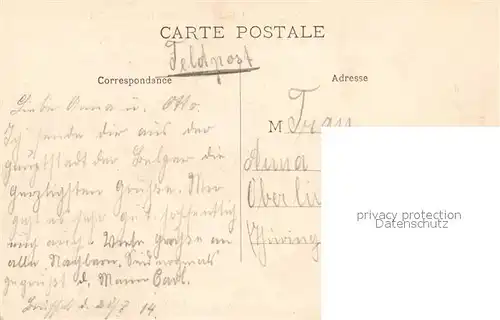 CARTE POSTALE
Feldpost
Correspondance
Adresse
Liebe Anna u. Otto.
Ich sende dir aus der
Hauptstadt der Belger die
herzligsten Grüße. Mir
geht es sehr gut hoffentlich
euch auch. Viele Grüße an
alle Nachbarn. Seid nochmals
gegrüßt d. Mann Carl.
Brüssel d.
14.
M Frau
Anna
Oberlin
Thüring
privacy protection
Datenschutz